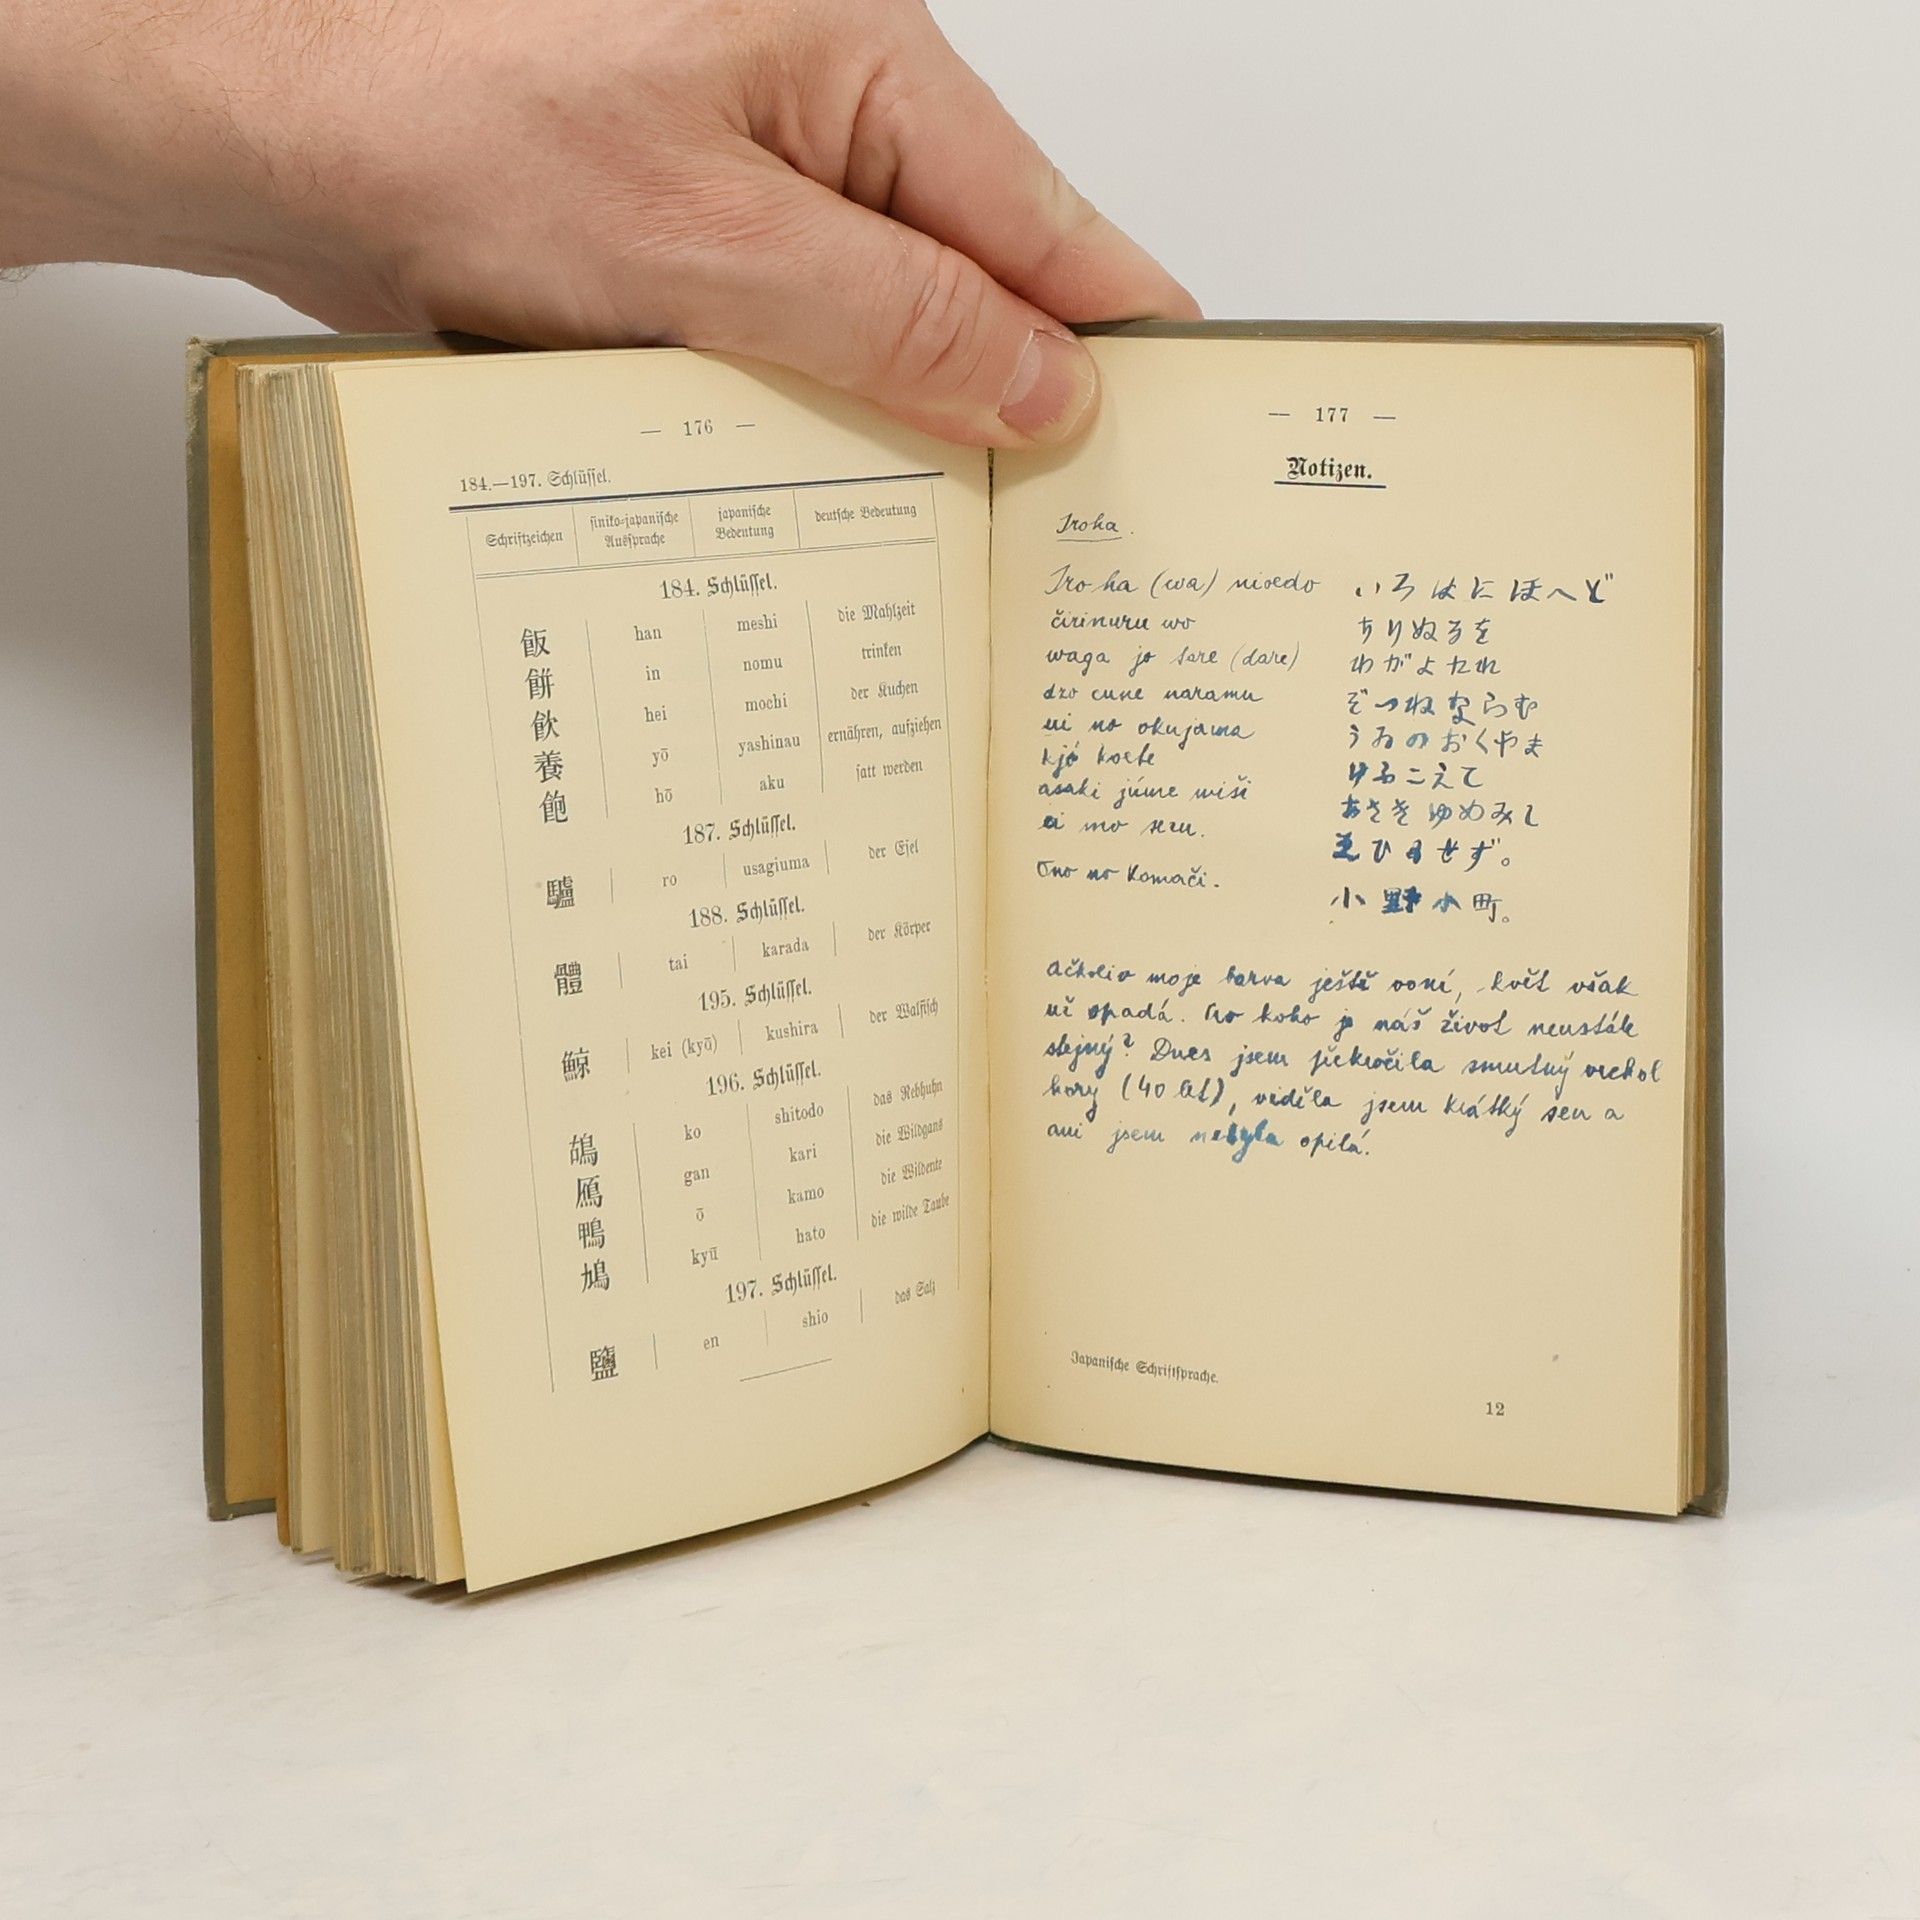 — 176 —
184.—197. Schlüssel.
Schriftzeichen siniko-japanische Aussprache japanische Bedeutung deutsche Bedeutung
184. Schlüssel.
飯 han meshi die Mahlzeit
餠 in nomu trinken
飮 hei mochi der Kuchen
養 yō yashinau ernähren, aufziehen
飽 hō aku satt werden
187. Schlüssel.
驢 ro usagiuma der Esel
188. Schlüssel.
體 tai karada der Körper
195. Schlüssel.
鯨 kei (kyō) kushira der Walfisch
196. Schlüssel.
鴣 ko shitodo das Rebhuhn
鴈 gan kari die Wildgans
鴨 ō kamo die Wildente
鳩 kyū hato die wilde Taube
197. Schlüssel.
鹽 en shio das Salz
— 177 —
Notizen.
Iroha.
Iro ha (wa) nioedo いろはにほへど
čirinuru wo ちりぬるを
waga jo tare (dare) わがよたれ
dzo cune naramu ぞつねならむ
ui no okujama うゐのおくやま
kjó koete けふこえて
asaki júme miši あさきゆめみし
ei mo sezu. ゑひもせず。
Ono no Komači. 小野小町。
Ačkoliv moje barva ještě voní, květ však
už opadá. Pro koho je náš život neustále
stejný? Dnes jsem překročila smutný vrchol
hory (40 let), viděla jsem krátký sen a
ani jsem nebyla opilá.
Japanische Schriftsprache.
12